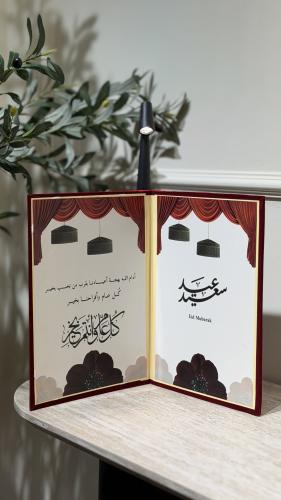 أدام الله بهجة أعيادنا بقرب من نحب بخير
كل عام وأفراحنا بخير
كل عام وأنتم بخير
عيد سعيد
Eid Mubarak